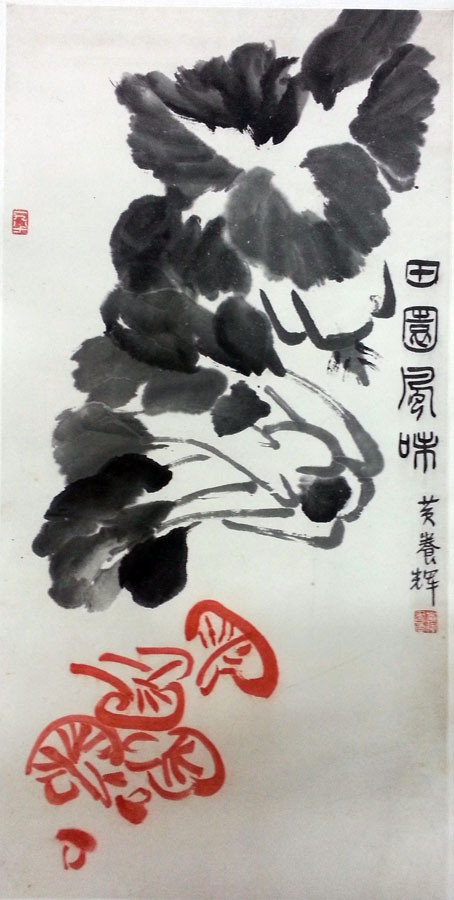 田園風味
黄養輝